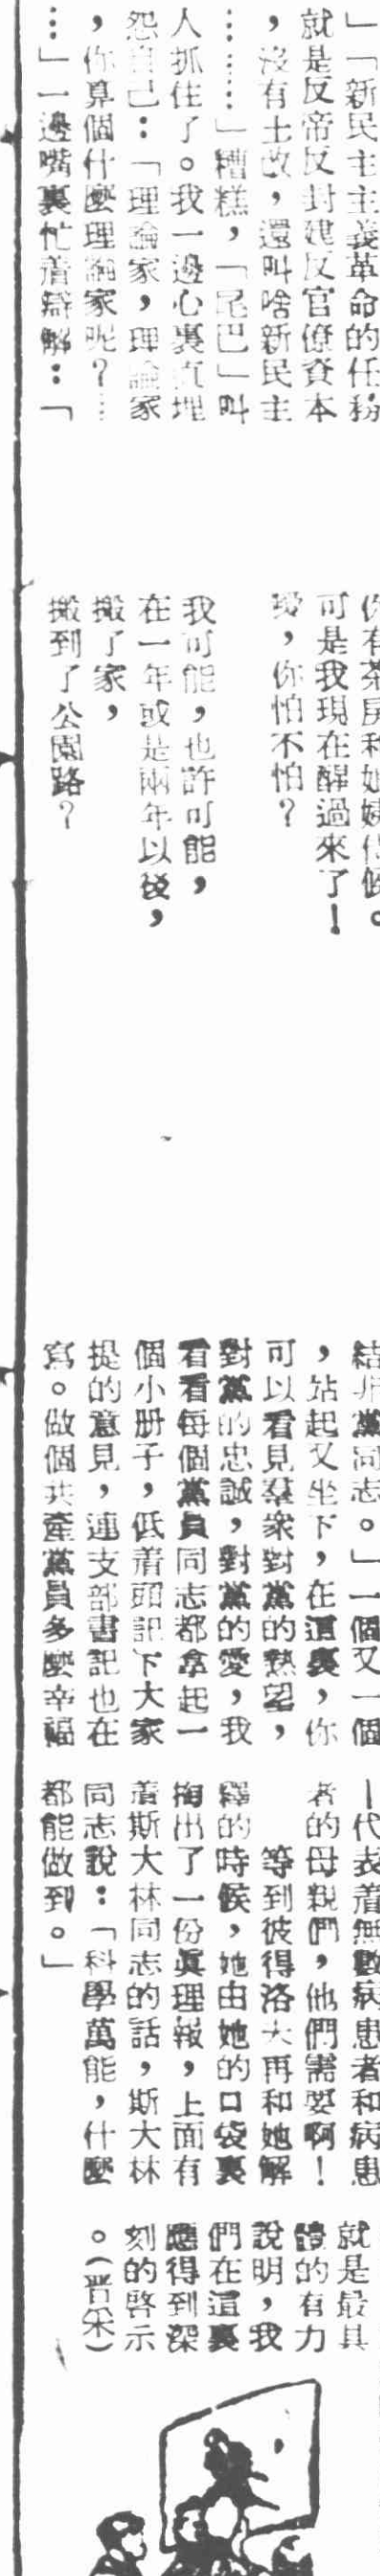 」「新民主主義革命的任務
就是反帝反封建反官僚資本
，沒有土改，還叫啥新民主
⋯⋯⋯」糟糕，「尾巴」叫
人抓住了。我一邊心裏直埋
怨自己：「理論家，理論家
，你算個什麼理論家呢？⋯
⋯」一邊嘴裏忙着辯解：「
你有茶房和她姨代候。
可是我現在醒過來了！
瑷，你怕不怕？
我可能，也許可能，
在一年或是兩年以後，
搬了家，
搬到了公園路？
結非黨同志。」一個又一個
，站起又坐下，在這裏，你
可以看見羣衆對黨的熱望，
對黨的忠誠，對黨的愛，我
看看每個黨員同志都拿起一
個小册子，低着頭記下大家
提的意見，連支部書記也在
寫。做個共產黨員多麼幸福
—代表着無數病患者和病患
者的母親們，他們需要啊！
等到彼得洛夫再和她解
釋的時候，她由她的口袋裏
掏出了一份眞理報，上面有
着斯大林同志的話，斯大林
同志說：「科學萬能，什麼
都能做到。」
就是最具
體的有力
說明，我
們在這裏
應得到深
刻的啓示
。（晋采）